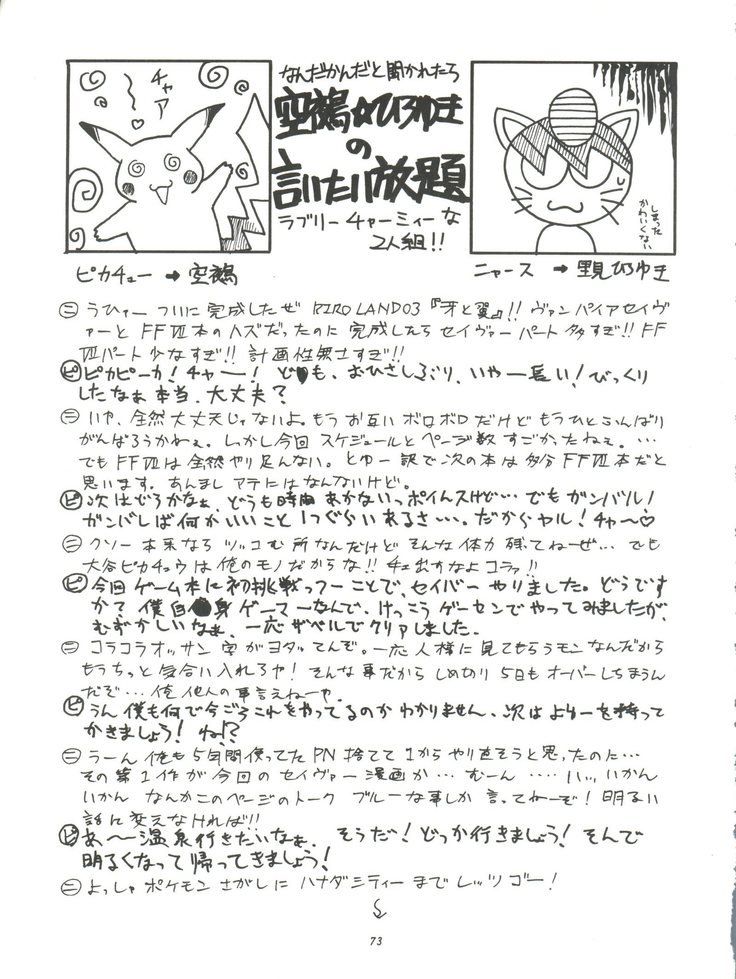 なんだかんだと聞かれたら
空鵺☆ひろゆき
の
言いたい放題
ラブリーチャーミィーな
2人組!!
チャア
しまった
かわいくない
ピカチュー → 空鵺
ニャース → 里見ひろゆき
㊁ うひァー ついに完成したぜ RIROLAND03『牙と翼』!! ヴァンパイアセイヴ
ァーと FFⅦ本のハズだったのに 完成したらセイヴァーパート多すぎ!! FF
Ⅶパート少なすぎ!! 計画性無さすぎ!!
㋪ ピカピーカ! チャー! ども、おひさしぶり、いやー長い! びっくり
したなぁ 本当、大丈夫?
㊁ いや、全然大丈夫じゃないよ。もう お互いボロボロだけど もうひとふんばり
がんばろうかねぇ。しかし今回 スケジュールとページ数 すごかったねぇ。…
でもFFⅦは全然やり足んない。とゆー訳で次の本は多分FFⅦ本だと
思います。あんましアテにはなんないけど。
㋪ 次はどうかなぁ、どうも時間あかないっポイんスけど… でもガンバル!
ガンバレば何かいいこと1つぐらいあるさ…。だからヤル! チャ〜♡
㊁ クソー 本来なら ツッコむ所なんだけど そんな体力 残ってねーぜ… でも
大谷ピカチュウは俺のモノだからな!! チェ出すなよコラァ!!
㋪ 今回ゲーム本に初挑戦っつーことで、セイバーやりました。どうです
かァ? 僕自身ゲーマーなんで、けっこうゲーセンでやってみましたが、
むずかしいなぁ、一応ザベルでクリアしました。
㊁ コラコラオッサン 字がヨタッてんぞ。一応 人様に見てもらうモンなんだから
もうちっと気合い入れろヤ! そんな事だから しめ切り 5日もオーバーしちまうん
だぞ… 俺 他人の事言えねーや。
㋪ うん 僕も何で今ごろこれをやってるのかわかりません、次はよゆーを持って
かきましょう! ね!?
㊁ うーん 俺も5年間使ってたPN捨てて 1からやり直そうと思ったのに…
その第1作が今回のセイヴァー漫画か… むーん …… いいいかん
いかん なんかこのページのトーク ブルーな事しか言ってねーぞ! 明るい
話に変えなければ!!
㋪ あ〜温泉行きたいなぁ、 そうだ! どっか行きましょう! そんで
明るくなって帰ってきましょう!
㊁ よっしゃ ポケモン さがしに ハナダシティーまで レッツゴー!
73